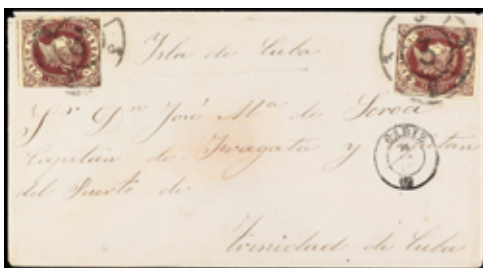 Isla de Cuba
Sr Dn José Ma de Soroa
Capitán de Fragata y Capitan
del Puerto de
CADIZ
Trinidad de Cuba